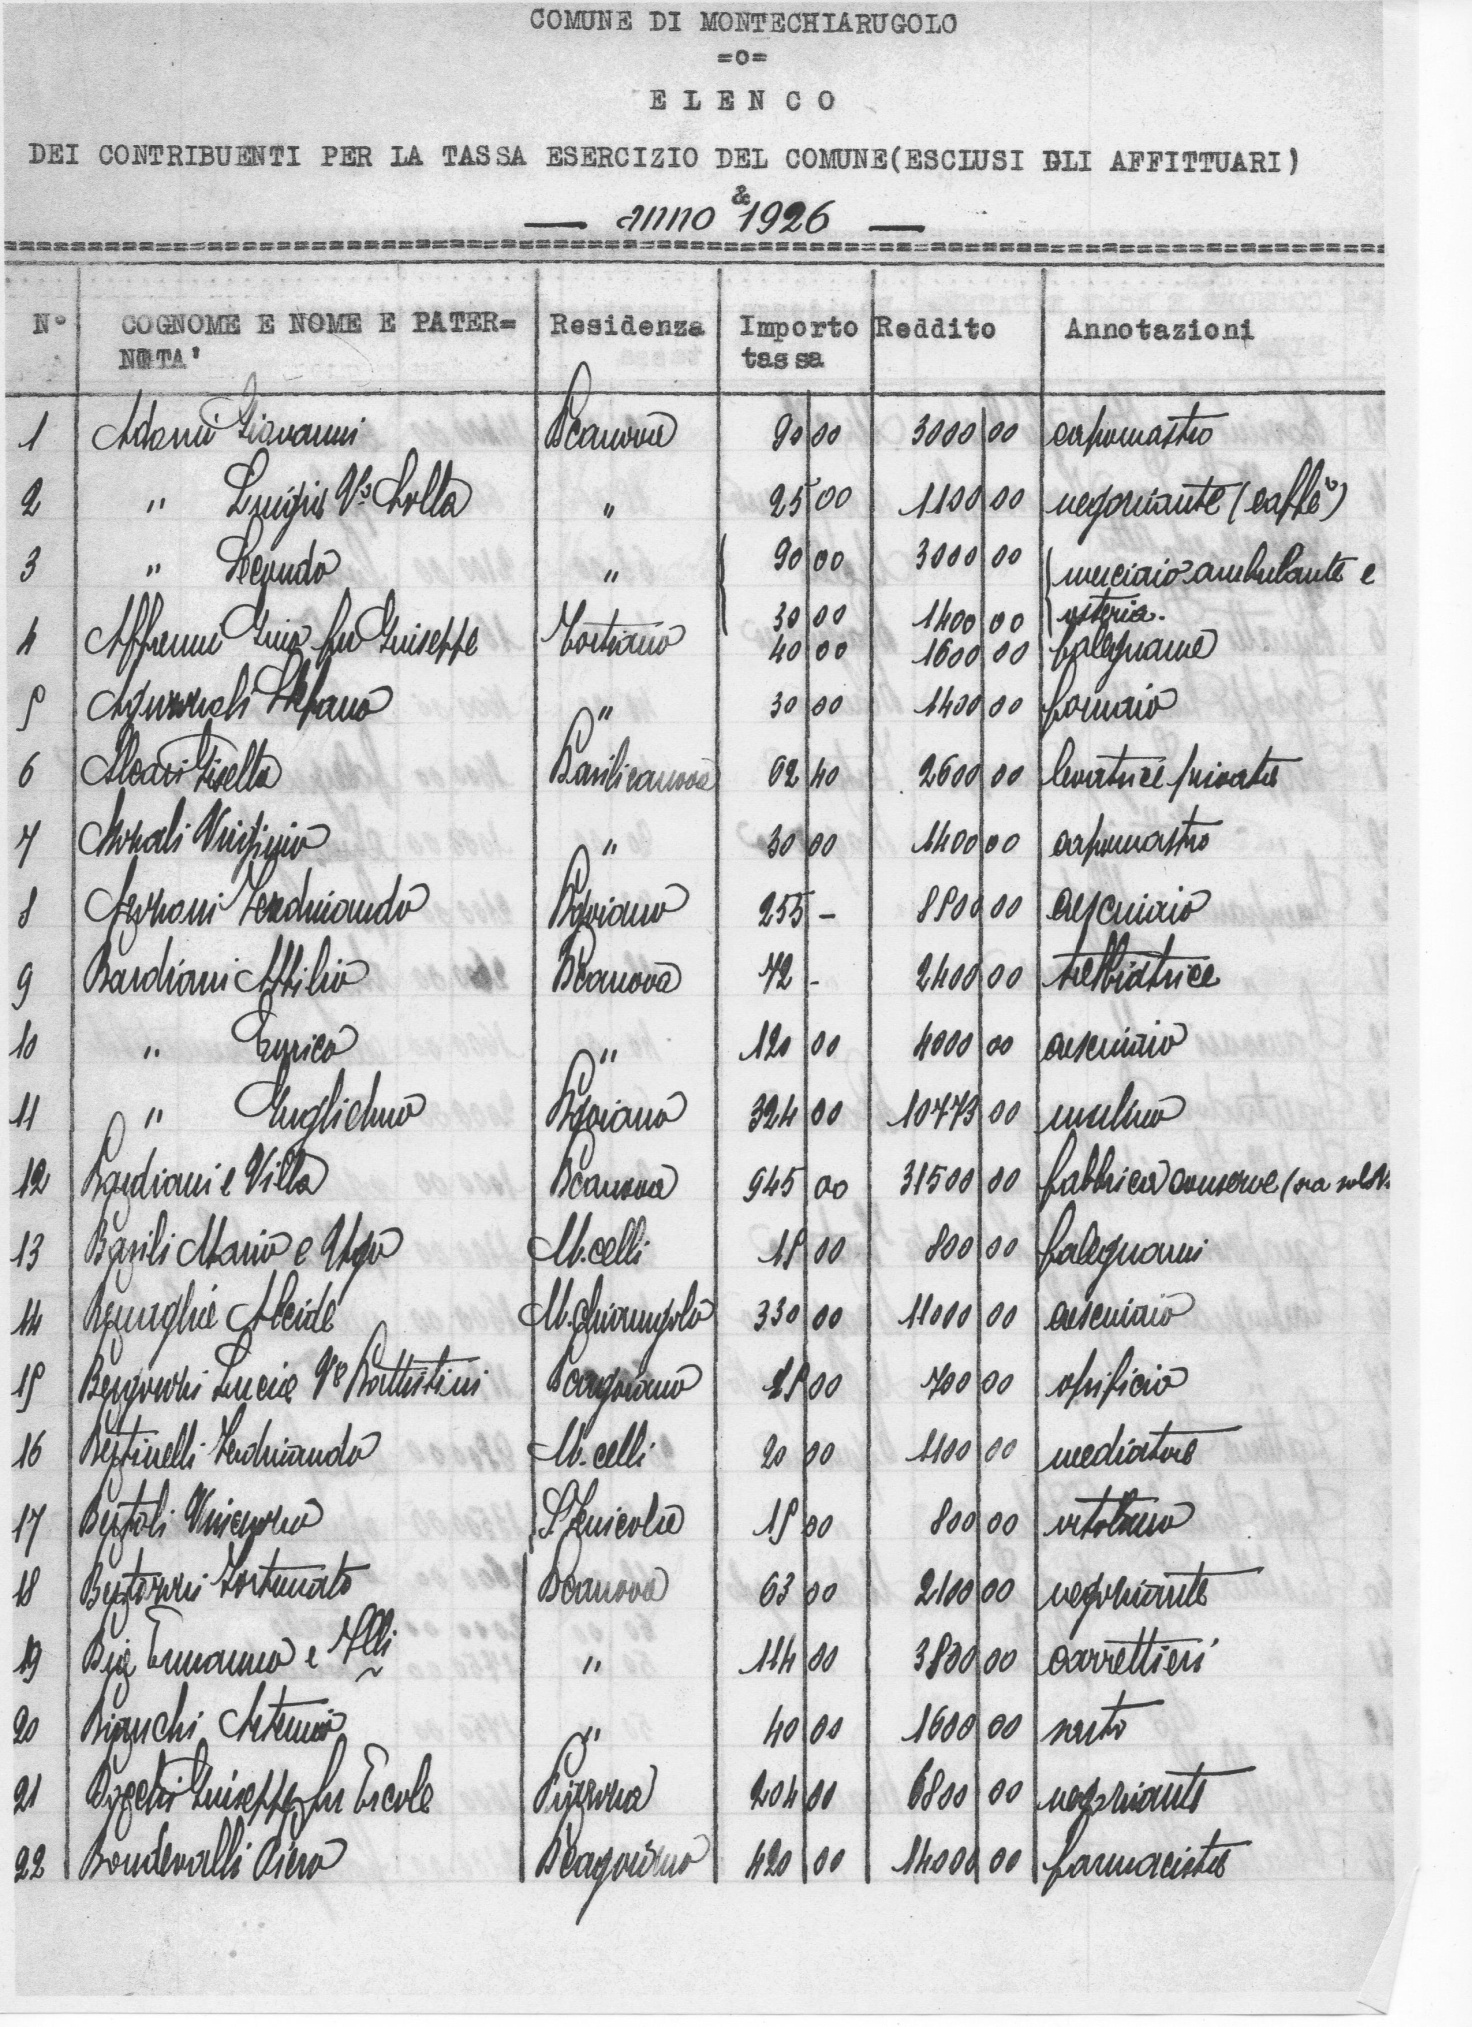 COMUNE DI MONTECHIARUGOLO
=o=
E L E N C O
DEI CONTRIBUENTI PER LA TASSA ESERCIZIO DEL COMUNE(ESCLUSI GLI AFFITTUARI)
&
— anno 1926 —
N° COGNOME E NOME E PATER= Residenza Importo Reddito Annotazioni
NITA' tassa
1 Adorni Giovanni Bcanova 90 00 3000 00 capomastro
2 " Luigia Va 25 00 1100 00 negoziante (caffè)
" 
3 " Secondo " 90 00 3000 00 merciaio ambulante e
30 00 1400 00 osteria.
4 Affanni Gino fu Giuseppe Tortiano 40 00 1600 00 falegname
5 Aguzzoli Stefano " 30 00 1400 00 fornaio
6 Gisella Basilicanova 62 40 2600 00 levatrice privata
7 Virginio " 30 00 1400 00 capomastro
8 Azzoni Ferdinando Bgoiano 255 - 8500 00 casciaio
9 Bardiani Attilio Bcanova 72 - 2400 00 trebbiatrice
10 " Enrico " 120 00 4000 00 casciaio
11 " Guglielmo Bgoiano 324 00 10773 00 mulino
12 Bardiani e Villa Bcanova 945 00 31500 00 fabbrica conserve (ora
13 Basili Mario e Ugo M.celli 15 00 800 00 falegnami
14 Alcide M.chiarugolo 330 00 11000 00 casciaio
15 Bergonzi Lucia Va Battistini Bcagoiano 15 00 700 00 opificio
16 Bertinelli Ferdinando M.celli 20 00 1100 00 mediatore
17 Bertoli Vincenzo 15 00 800 00 ortolano
18 Bertozzi Fortunato Bcanova 63 00 2100 00 negoziante
19 Ermanno e Flli " 114 00 3800 00 carrettieri
20 Bianchi Artemio " 40 00 1600 00 sarto
21 Bocchi Giuseppe fu Ercole Piazza 204 00 6800 00 negoziante
22 Bondavalli Piero Bcagoiano 420 00 14000 00 farmacista